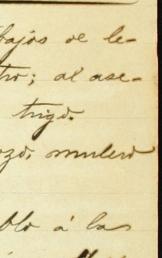 bajos de le-
tro; al ase-
trigo.
ozo, mulero
blo á las